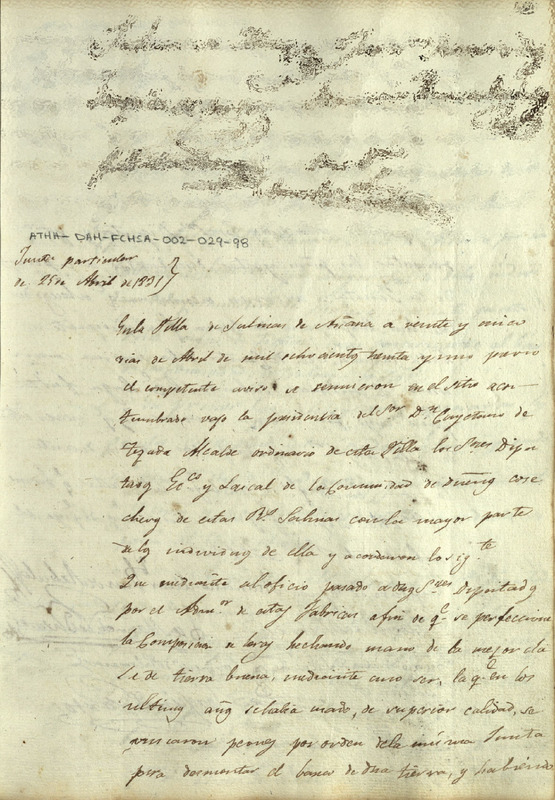 ATHA-DAH-FCHSA-002-029-98
Junta particular
de 25 de Abril de 1831
En la Villa de Salinas de Añana a veinte y cinco
dias de Abril de mil ochocientos treinta y uno previo
el competente aviso se reunieron en el sitio acos
tumbrado vajo la presidencia del Sor Dn Cayetano de
Tejada Alcalde ordinario de esta Villa los Sres Dipu
tados Ecco y Lascal de la Comunidad de dueños cose
cheros de estas Rs Salinas con la mayor parte
de los individuos de ella y acordaron lo sigte
Que mediante al oficio pasado a dhos Sres Diputados
por el Admor de estas fabricas a fin de qe se perfeccione
la Composicion de heras hechando mano de la mejor cla
se de tierra buena, mediante no ser, la qe en los
ultimos años se habia usado, de superior calidad, se
buscaron peones por orden de la misma Junta
para desmontar el banco de dha tierra, y habiendo